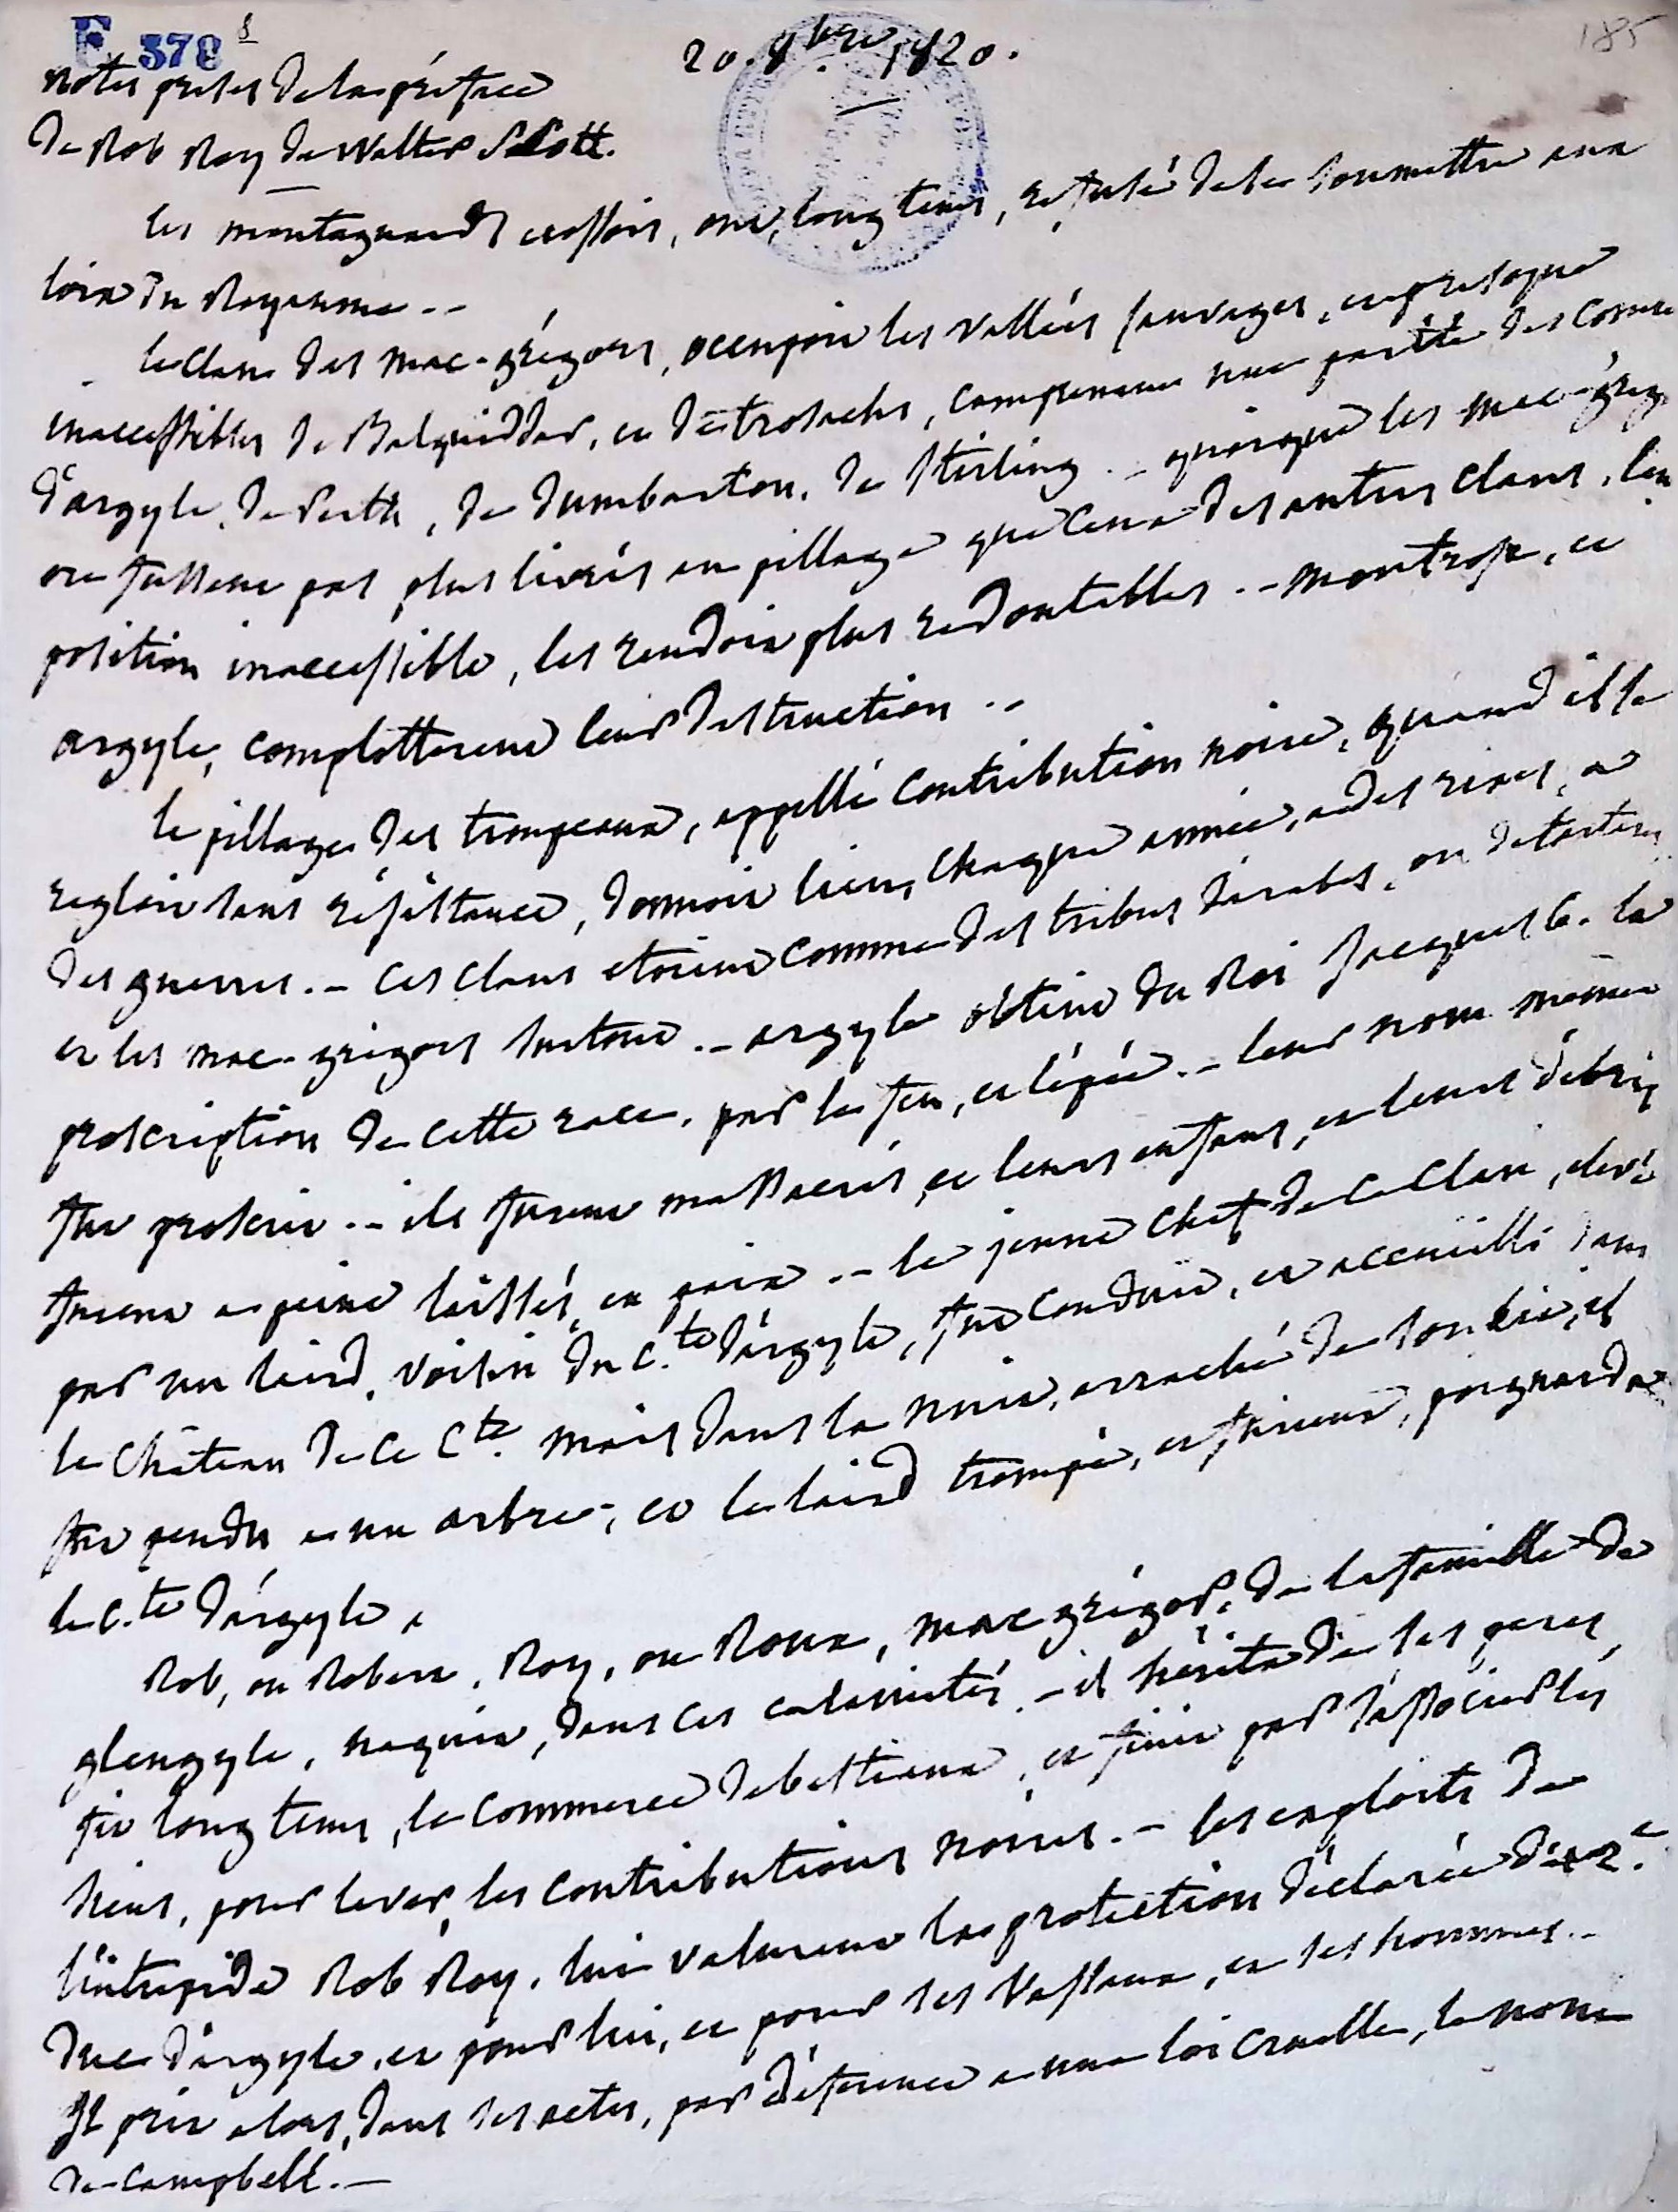 E 378 8
185
20. 8bre. 1820.
notes prises de la préface
de Rob Roy de Walter Scott.
les montagnards ecossois, ont, long tems, refusé de se soumettre aux
loix du Royaume..
le clan des mac-grégors, occupoit les vallées sauvages, et presque
inaccessibles de Balquiddar, et de trosachs, comprenant une partie des comtés
d'argyle, de Perth, de Dumbarton, de Stirling .. quoique les mac-greg
ne fussent pas plus livrés au pillage que ceux des autres clans, leur
position inaccessible, les rendoit plus redoutables .. montrose, et
argyle, complotterent leur destruction ..
le pillage des troupeaux, appellé contribution noire, quand il se
regloit sans résistance, donnoit lieu, chaque année, a des rixes, a
des guerres.. ces clans etoient comme des tribus d'arabes, ou de tartares
et les mac-grégors surtout .. argyle obtint du Roi Jacques 6. la
proscription de cette race, par le feu, et l'épée .. leur nom même
fut proscrit .. ils furent massacrés, et leurs enfans, et leurs débris
furent a peine laissés, en paix .. le jeune chef de ce clan, elevé
par un laird, voisin du c.te d'argyle, fut conduit, et accueilli dans
le château de ce Cte. mais dans la nuit, arraché de son lit, il
fut pendu a un arbre, et le laird trompé, et furieux, poignarda
le c.te d'argyle.
Rob, ou Robert, Roy, ou Roux, mac grégor, de la famille de
glengyle, naquit, dans ces calamités .. il hérita de ses peres,
fit long tems, le commerce de bestiaux, et finit par s'associer les
siens, pour lever, les contributions noires .. les exploits de
l'intrépide Rob Roy, lui valurent la protection déclarée du 2.e
duc d'argyle, et pour lui, et pour ses vassaux, et ses hommes..
Il prit alors, dans ses actes, par déférence a une loi cruelle, le nom
de Campbell. —